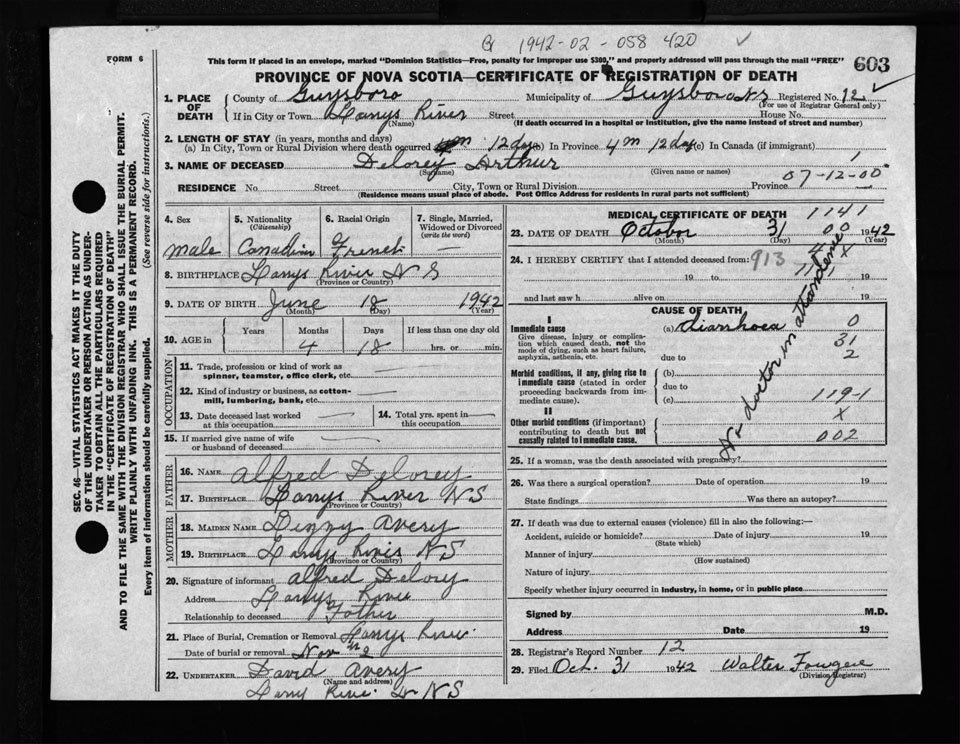 1942-02-058 420
FORM 6
This form if placed in an envelope, marked "Dominion Statistics—Free, penalty for improper use $300," and properly addressed will pass through the mail "FREE"
603
PROVINCE OF NOVA SCOTIA—CERTIFICATE OF REGISTRATION OF DEATH
SEC. 46—VITAL STATISTICS ACT MAKES IT THE DUTY
OF THE UNDERTAKER OR PERSON ACTING AS UNDER-
TAKER TO OBTAIN ALL THE PARTICULARS REQUIRED
IN THE "CERTIFICATE OF REGISTRATION OF DEATH"
AND TO FILE THE SAME WITH THE DIVISION REGISTRAR WHO SHALL ISSUE THE BURIAL PERMIT.
WRITE PLAINLY WITH UNFADING INK. THIS IS A PERMANENT RECORD.
Every item of information should be carefully supplied. (See reverse side for instructions.)
1. PLACE OF DEATH County of Guysboro Municipality of Guysboro NS Registered No. 12
(For use of Registrar General only)
If in City or Town Larrys River Street House No.
(Name) (If death occurred in a hospital or institution, give the name instead of street and number)
2. LENGTH OF STAY (in years, months and days)
(a) In City, Town or Rural Division where death occurred 4 m 12 days (b) In Province 4 m 12 days (c) In Canada (if immigrant)
3. NAME OF DECEASED Delorey Arthur 1
(Surname) (Given name or names)
07-12-00
RESIDENCE No. Street City, Town or Rural Division Province
(Residence means usual place of abode. Post Office Address for residents in rural parts not sufficient)
4. Sex 5. Nationality (Citizenship) 6. Racial Origin 7. Single, Married, Widowed or Divorced (write the word)
Male Canadian French
8. BIRTHPLACE Larrys River N S
(Province or Country)
9. DATE OF BIRTH June 18 1942
(Month) (Day) (Year)
10. AGE in Years Months Days If less than one day old
4 18 hrs. or min.
OCCUPATION
11. Trade, profession or kind of work as
spinner, teamster, office clerk, etc.
12. Kind of industry or business, as cotton-
mill, lumbering, bank, etc.
13. Date deceased last worked at this occupation 14. Total yrs. spent in this occupation
15. If married give name of wife
or husband of deceased
FATHER
16. NAME Alfred Delorey
17. BIRTHPLACE Larrys River NS
(Province or Country)
MOTHER
18. MAIDEN NAME Avery
19. BIRTHPLACE Larrys River NS
(Province or Country)
20. Signature of informant Alfred Delory
Address Larrys River
Relationship to deceased Father
21. Place of Burial, Cremation or Removal Larrys River
Date of burial or removal Nov 2
22. UNDERTAKER David Avery
(Name and address)
Larry River NS
MEDICAL CERTIFICATE OF DEATH 1141
23. DATE OF DEATH October 31 00 1942
(Month) (Day) (Year)
24. I HEREBY CERTIFY that I attended deceased from: 913
19 to 19
and last saw h alive on 19
CAUSE OF DEATH
I
Immediate cause (a) diarrhoea 0
Give disease, injury or complica-
tion which caused death, not the
mode of dying, such as heart failure,
asphyxia, asthenia, etc.
31
due to 2
Morbid conditions, if any, giving rise to
immediate cause (stated in order
proceeding backwards from im-
mediate cause).
(b)
due to
(c) 119-1
II
Other morbid conditions (if important)
contributing to death but not
causally related to immediate cause.
X
002
No doctor in attendence
25. If a woman, was the death associated with pregnancy?
26. Was there a surgical operation? Date of operation 19
State findings Was there an autopsy?
27. If death was due to external causes (violence) fill in also the following:—
Accident, suicide or homicide? Date of injury 19
(State which)
Manner of injury
(How sustained)
Nature of injury
Specify whether injury occurred in industry, in home, or in public place
Signed by M.D.
Address Date 19
28. Registrar's Record Number 12
29. Filed Oct. 31 1942 Walter Fougere
(Division Registrar)